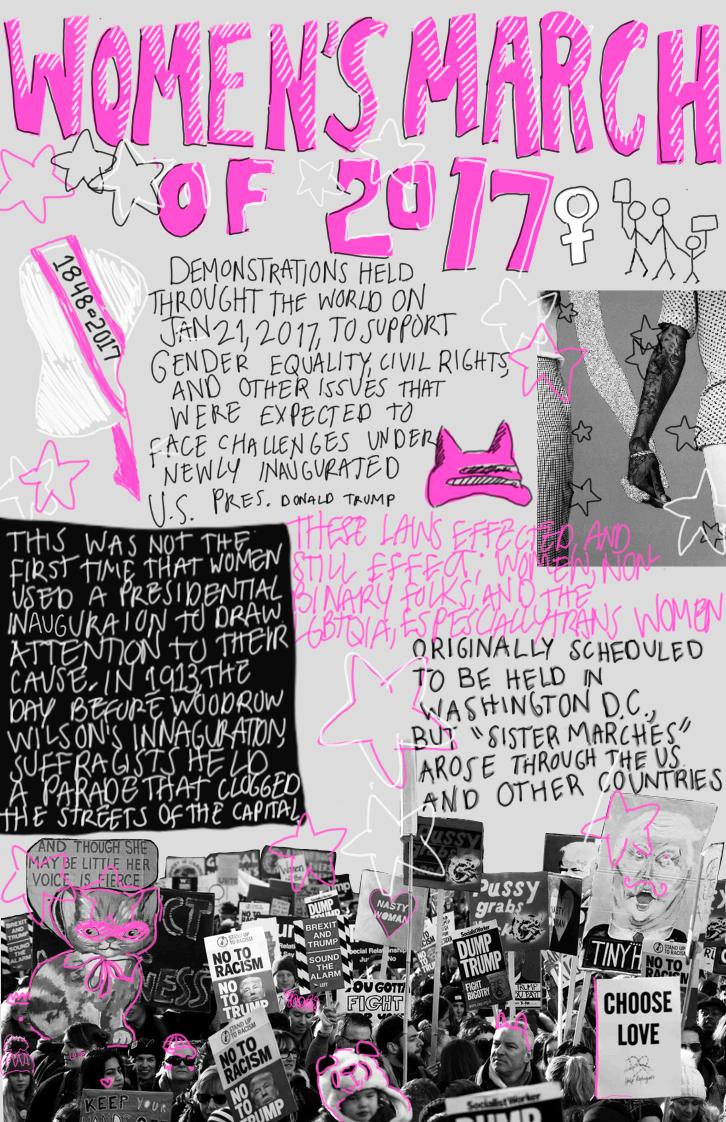 WOMEN'S MARCH
OF 2017
1848-2017
DEMONSTRATIONS HELD
THROUGHT THE WORLD ON
JAN 21, 2017, TO SUPPORT
GENDER EQUALITY, CIVIL RIGHTS,
AND OTHER ISSUES THAT
WERE EXPECTED TO
FACE CHALLENGES UNDER
NEWLY INAUGURATED
U.S. PRES. DONALD TRUMP
THIS WAS NOT THE
FIRST TIME THAT WOMEN
USED A PRESIDENTIAL
INAUGURAION TO DRAW
ATTENTION TO THEIR
CAUSE. IN 1913, THE
DAY BEFORE WOODROW
WILSON'S INNAGURATION,
SUFFRAGISTS HELD
A PARADE THAT CLOGGED
THE STREETS OF THE CAPITAL
THESE LAWS EFFECTED, AND
STILL EFFECT: WOMEN, NON-
BINARY FOLKS, AND THE
LGBTQIA, ESPESCALLY TRANS WOMEN
ORIGINALLY SCHEDULED
TO BE HELD IN
WASHINGTON D.C.,
BUT "SISTER MARCHES"
AROSE THROUGH THE US
AND OTHER COUNTRIES
AND THOUGH SHE
MAY BE LITTLE HER
VOICE IS FIERCE
BREXIT
AND
TRUMP
SOUND
THE
ALARM
CT
NESS
STAND UP
TO RACISM
NO TO
RACISM
NO TO
TRUMP
STAND UP
TO RACISM
NO TO
RACISM
NO TO
TRUMP
DUMP
TRUMP
BREXIT
AND
TRUMP
SOUND
THE
ALARM
NASTY
WOMAN
YOU GOTTA
FIGHT
PUSSY
Pussy
grabs
Socialist Worker
DUMP
TRUMP
FIGHT
BIGOTRY
TINY H
STAND UP
TO RACISM
NO TO
RACISM
CHOOSE
LOVE
Help Refugees
KEEP YOUR
Socialist Worker
DUMP